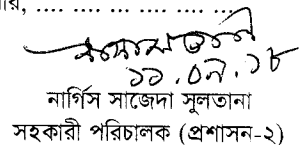 ..., .... .... .... .... .... ....
১১.০৯.১৮
নার্গিস সাজেদা সুলতানা
সহকারী পরিচালক (প্রশাসন-২)